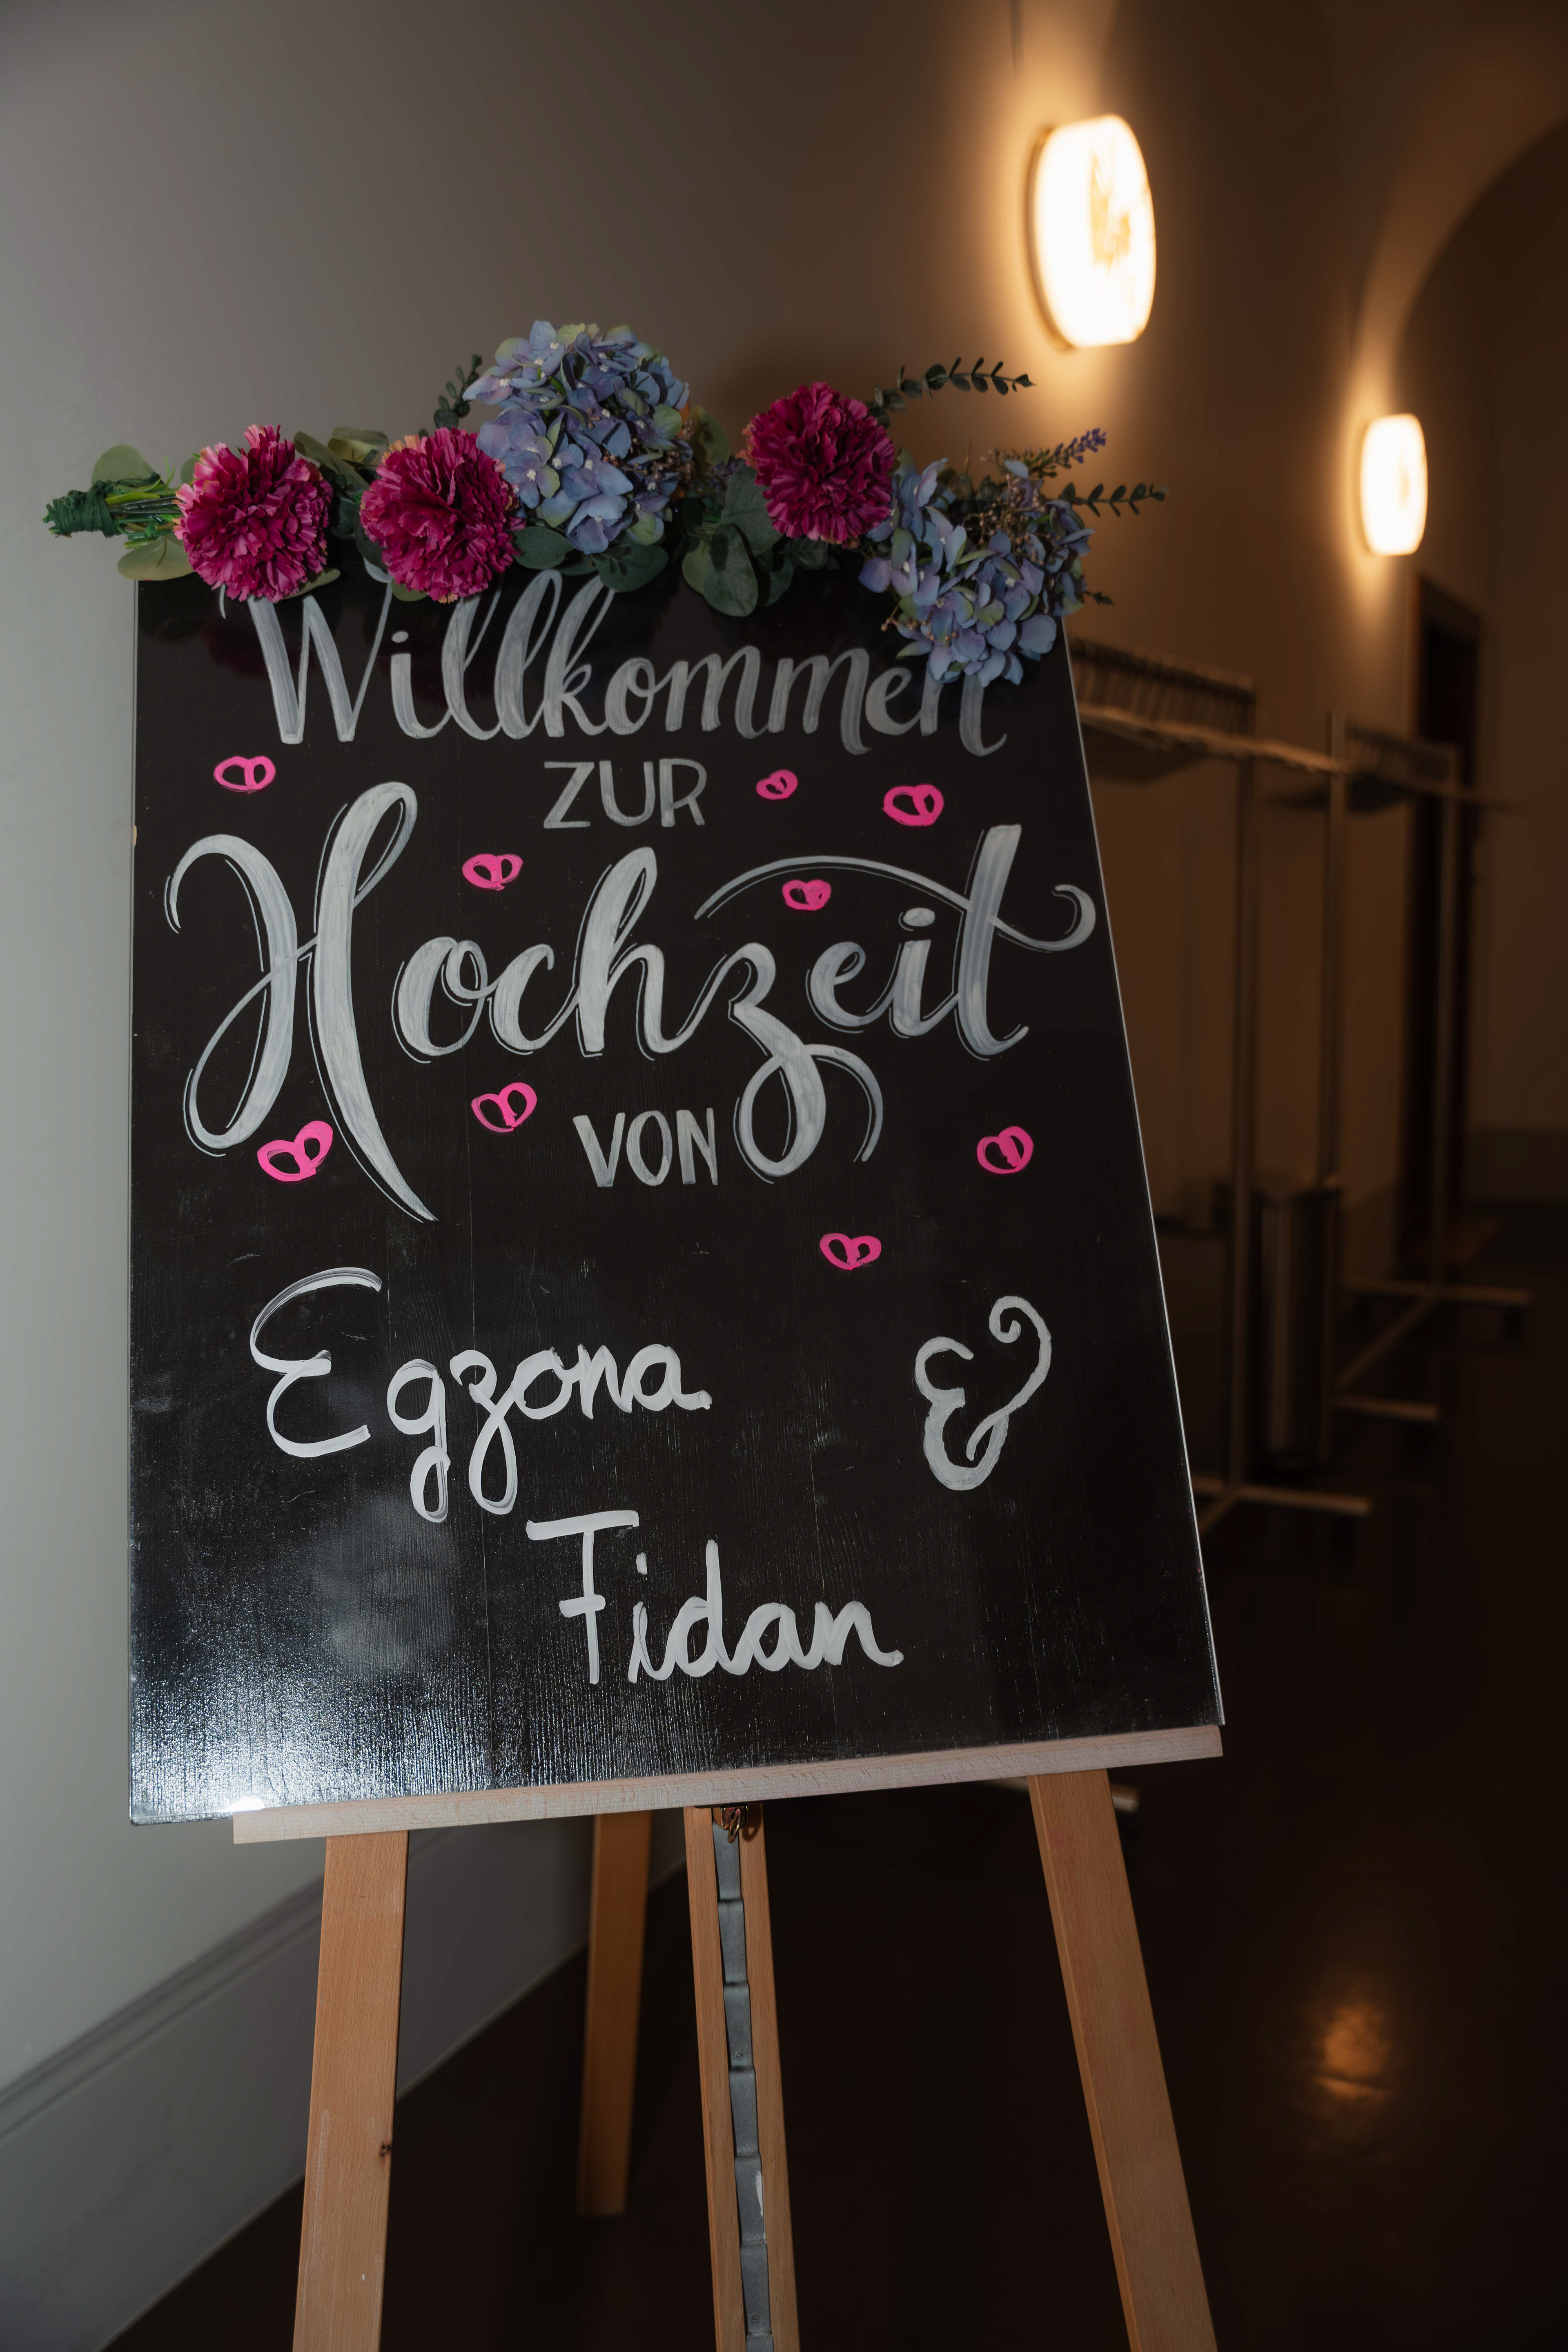 Willkommen
ZUR
Hochzeit
VON
Egzona &
Fidan